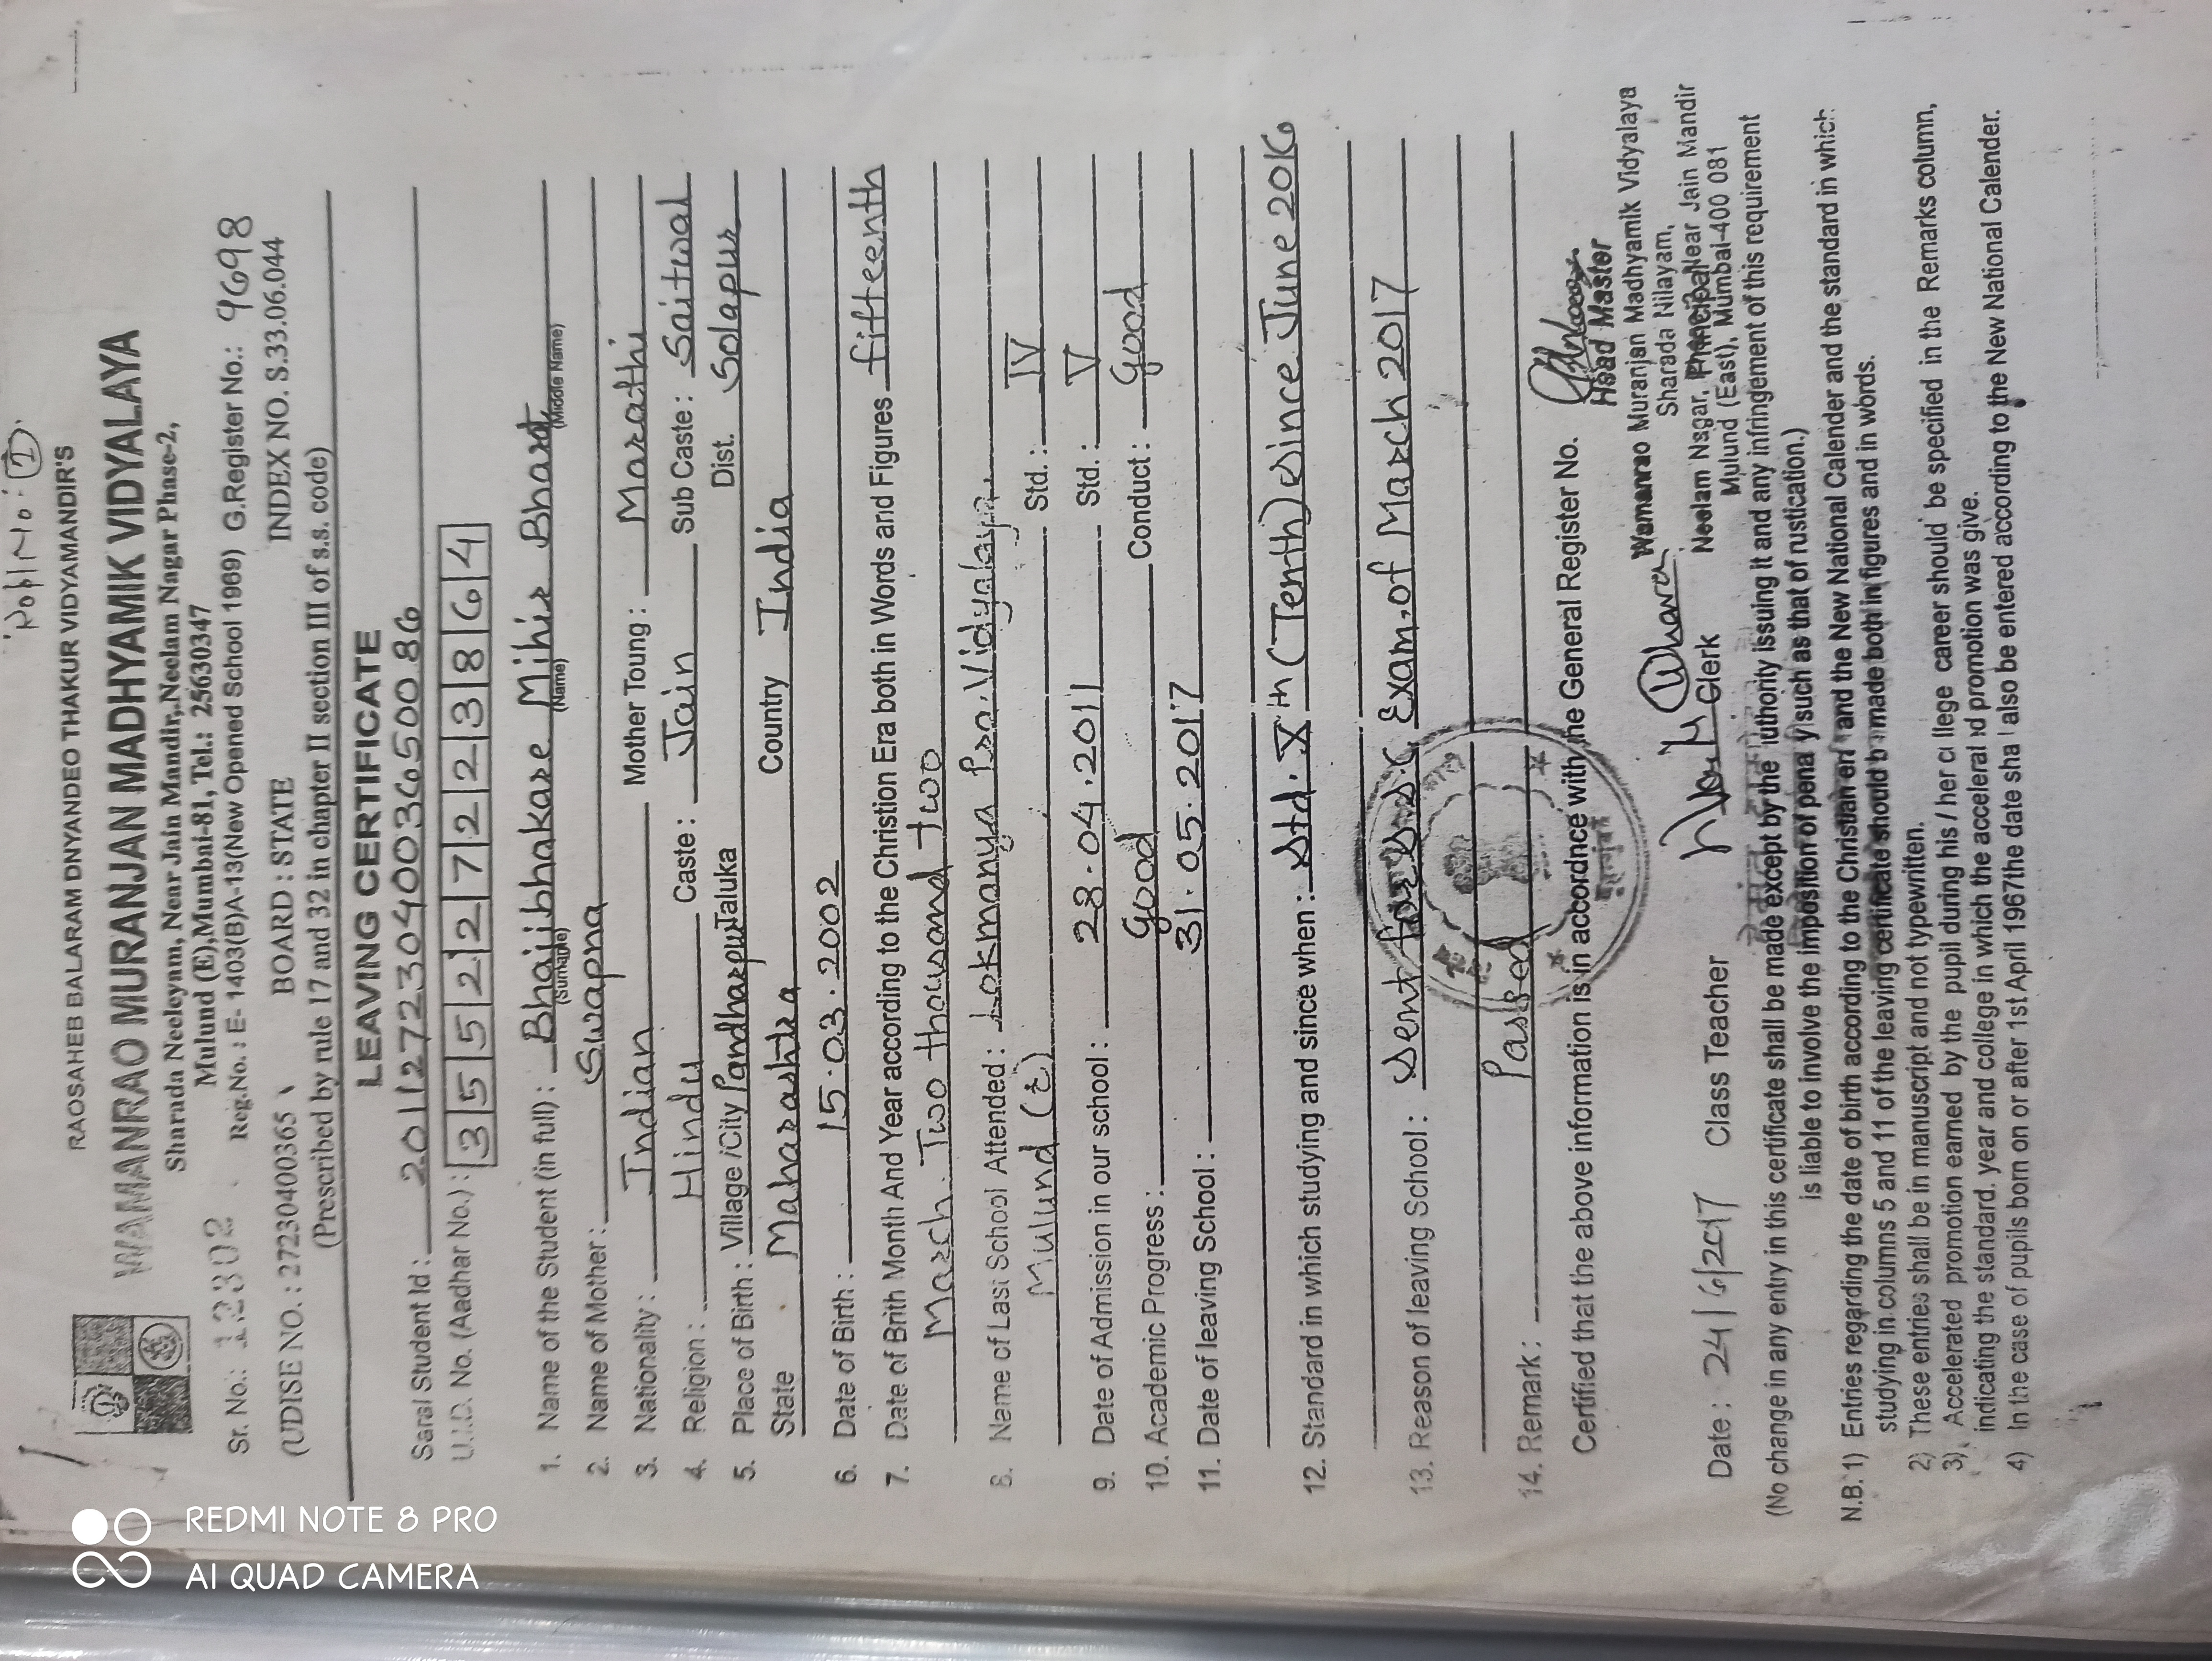 Roll No: 1
RAOSAHEB BALARAM DNYANDEO THAKUR VIDYAMANDIR'S
WAMANRAO MURANJAN MADHYAMIK VIDYALAYA
Sharada Neeleyam, Near Jain Mandir,Neelam Nagar Phase-2,
Mulund (E),Mumbai-81, Tel.: 25630347
Sr. No.: 12302 Reg.No. : E- 1403(B)A-13(New Opened School 1969) G.Register No.: 9698
(UDISE NO. : 27230400365 BOARD : STATE INDEX NO. S.33.06.044
(Prescribed by rule 17 and 32 in chapter II section III of s.s. code)
LEAVING CERTIFICATE
Saral Student Id : 2011272304003650086
U.I.D. No. (Aadhar No.) : 3 5 5 2 2 7 2 2 3 8 6 4
1. Name of the Student (in full) : Bhaijibhakare Mihir Bharat
(Surname) (Name) (Middle Name)
2. Name of Mother : Swapna
3. Nationality : Indian Mother Toung : Marathi
4. Religion : Hindu Caste : Jain Sub Caste : Saitwal
5. Place of Birth : Village /City Pandharpur Taluka Dist. Solapur
State Maharashtra Country India
6. Date of Birth : 15.03.2002
7. Date of Brith Month And Year according to the Christion Era both in Words and Figures fifteenth
March Two thousand two
8. Name of Last School Attended : Lokmanya Pra.Vidyalaya.
Mulund (E) Std. : IV
9. Date of Admission in our school : 28.04.2011 Std. : V
10. Academic Progress : Good Conduct : Good
11. Date of leaving School : 31.05.2017
12. Standard in which studying and since when : Std. Xth (Tenth) Since June 2016
13. Reason of leaving School : Sent for S.S.C Exam. of March 2017
14. Remark : Passed
Certified that the above information is in accordnce with the General Register No.
Head Master
Wamanrao Muranjan Madhyamik Vidyalaya
Sharada Nilayam,
Neelam Nsgar, Near Jain Mandir
Principal
Mulund (East), Mumbai-400 081
Date : 24/6/2017 Class Teacher Clerk
(No change in any entry in this certificate shall be made except by the authority issuing it and any infringement of this requirement
is liable to involve the imposition of pena y such as that of rustication.)
N.B. 1) Entries regarding the date of birth according to the Christian er and the New National Calender and the standard in which
studying in columns 5 and 11 of the leaving certificate should b made both in figures and in words.
2) These entries shall be in manuscript and not typewritten.
3) Accelerated promotion earned by the pupil during his / her college career should be specified in the Remarks column,
indicating the standard. year and college in which the acceleral d promotion was give.
4) In the case of pupils born on or after 1st April 1967the date sha l also be entered according to the New National Calender.
REDMI NOTE 8 PRO
AI QUAD CAMERA